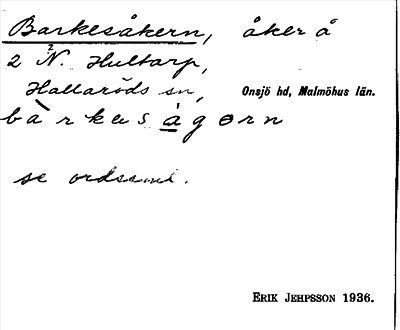 Barkesåkern, åker å
2 N. Hultarp,
Hallaröds sn, Onsjö hd, Malmöhus län.
bàrkas ågørn
se ordsaml.
ERIK JEHPSSON 1936.